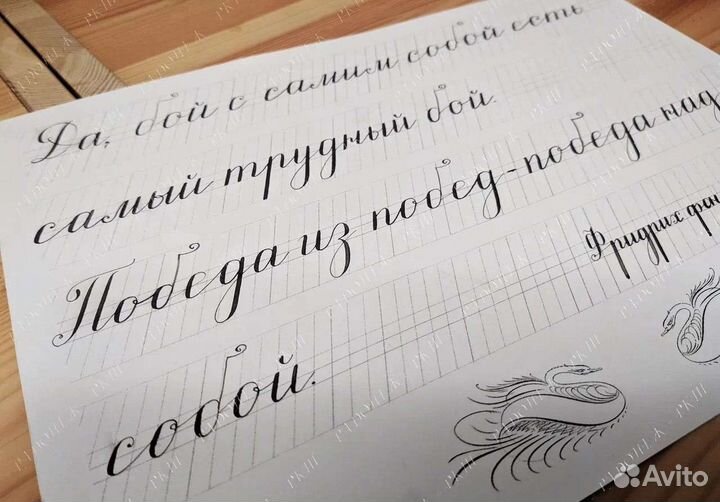 Да, бой с самим собой есть
самый трудный бой.
Победа из побед-победа над
собой.
Фридрих фон
Avito